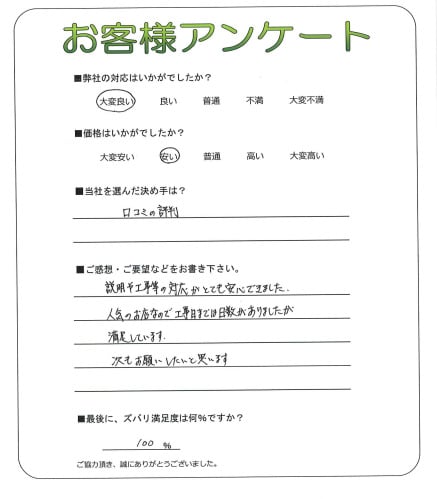 お客様アンケート
■弊社の対応はいかがでしたか？
大変良い 良い 普通 不満 大変不満
■価格はいかがでしたか？
大変安い 安い 普通 高い 大変高い
■当社を選んだ決め手は？
口コミの評判
■ご感想・ご要望などをお書き下さい。
説明や工事等の対応がとても安心できました.
人気のお店なので工事日までは日数がありましたが
満足しています.
次もお願いしたいと思います
■最後に、ズバリ満足度は何%ですか？
100 %
ご協力頂き、誠にありがとうございました。